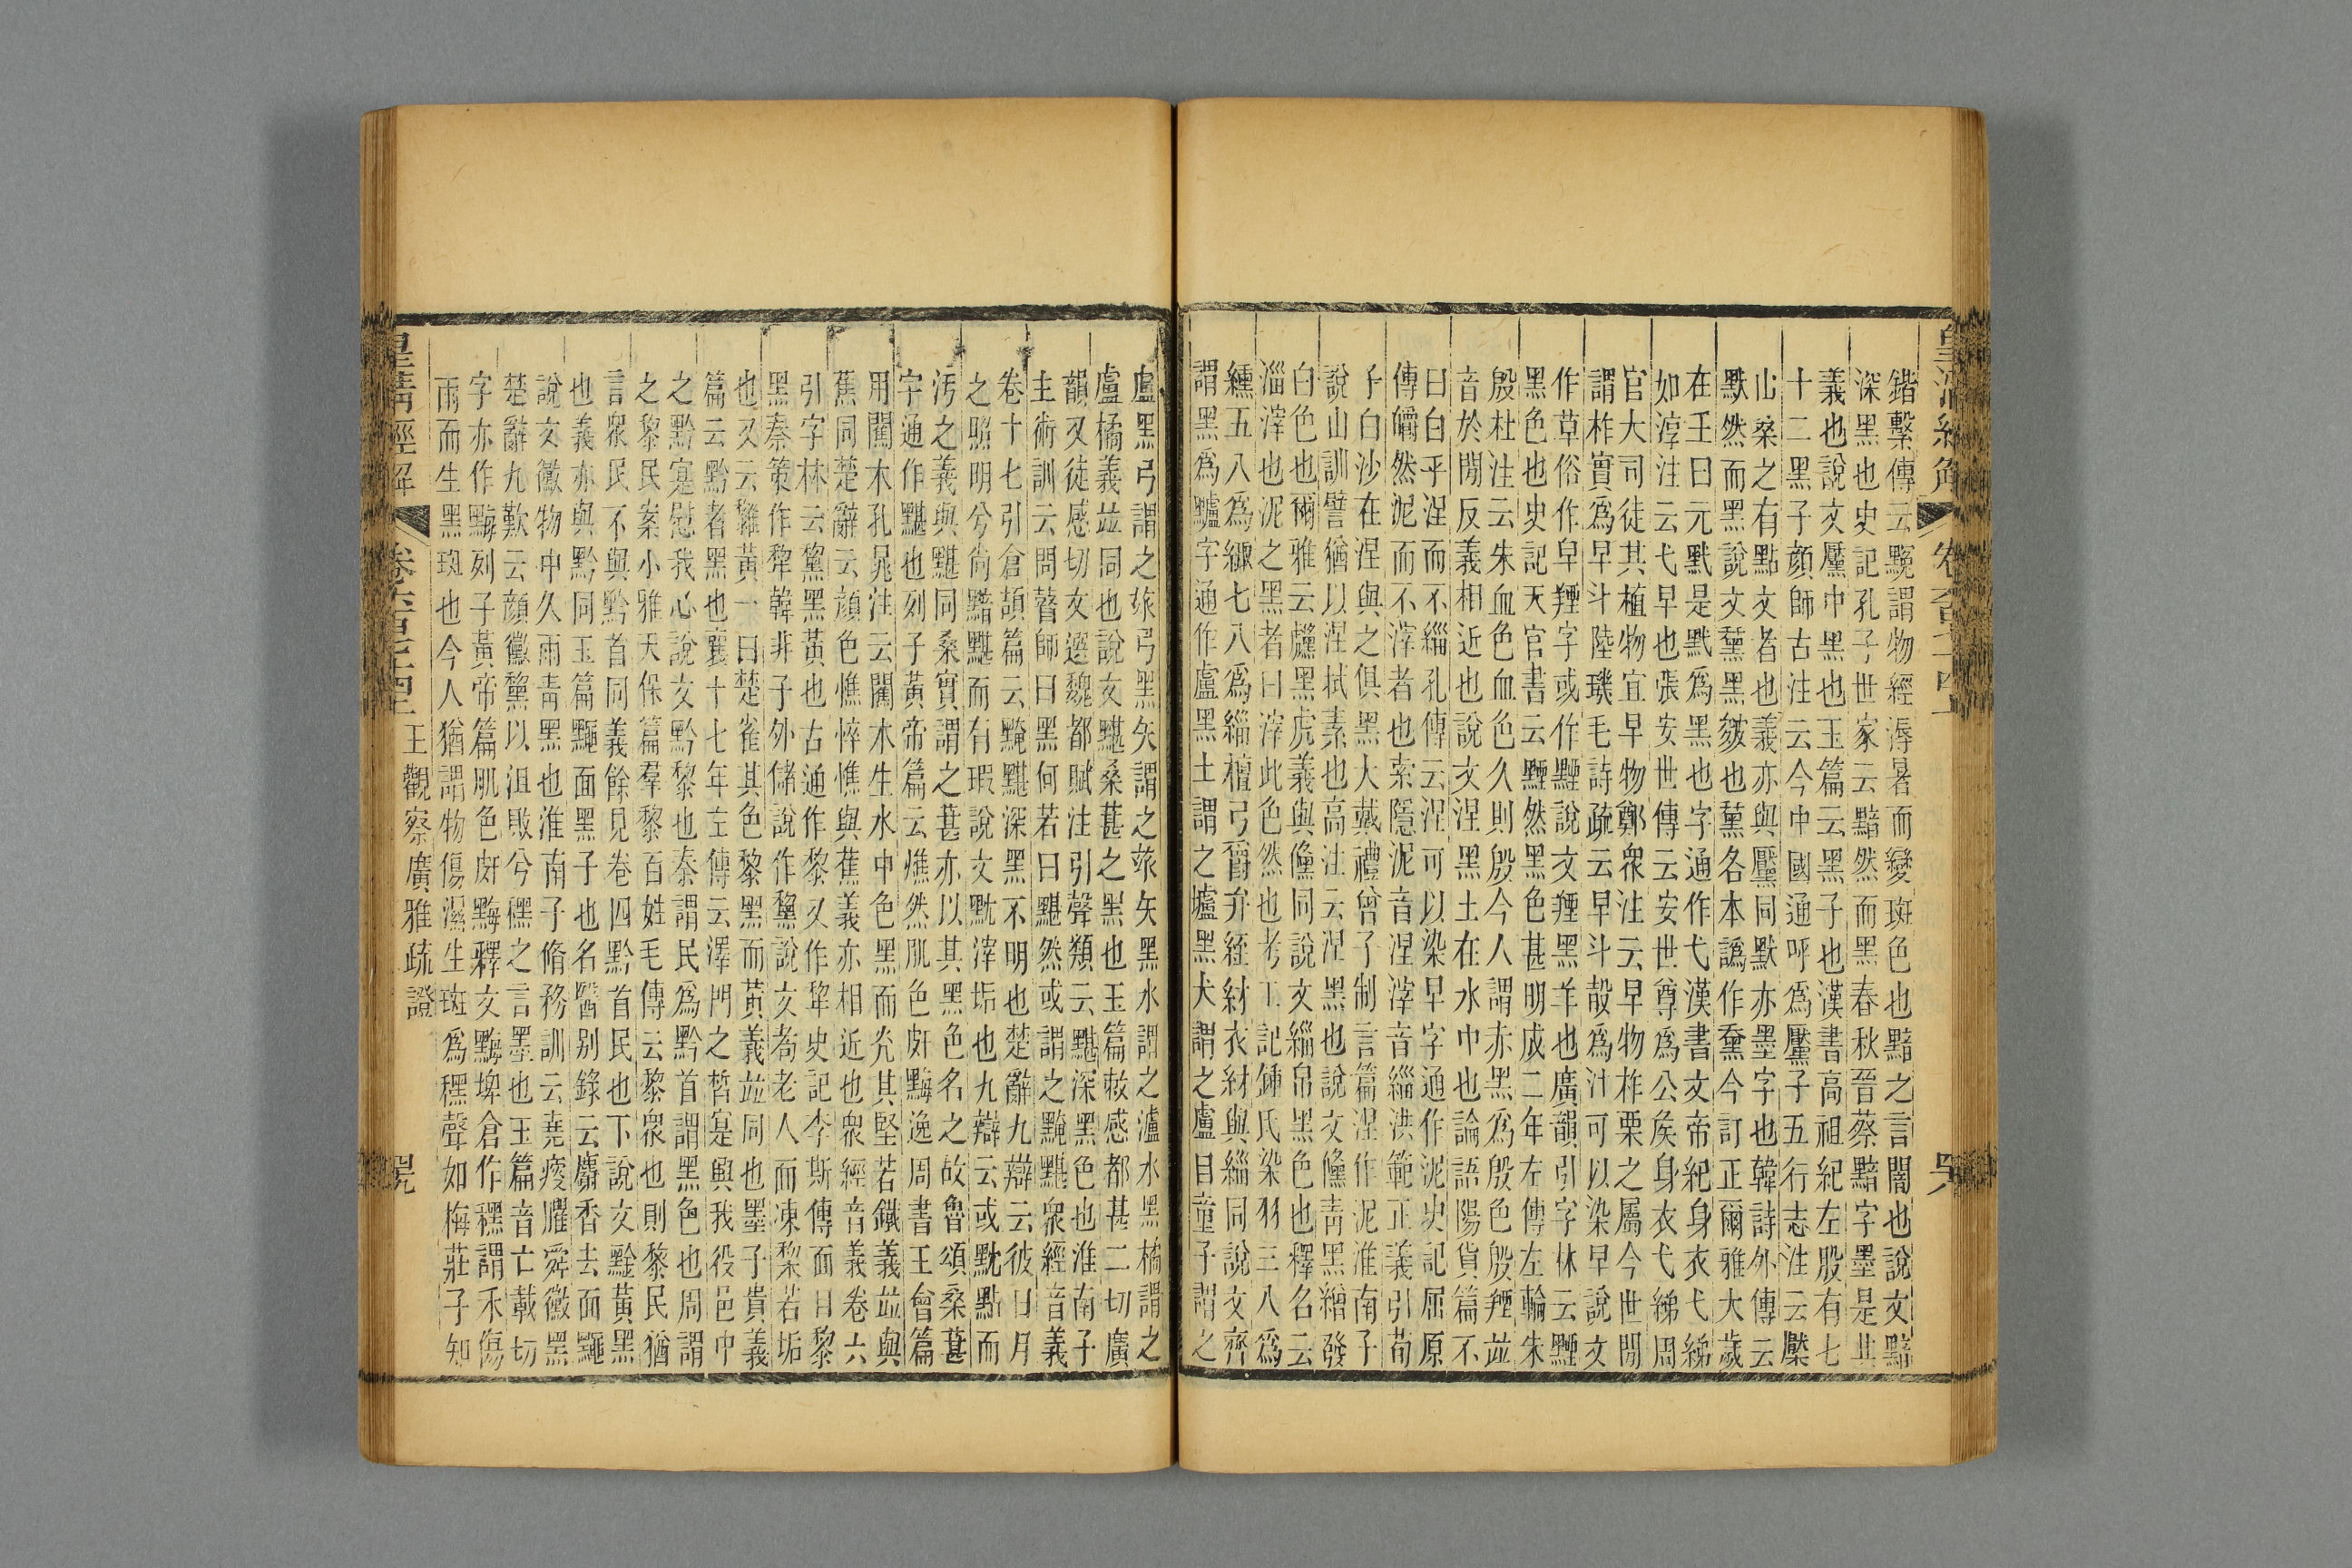 鍇繫傳云黦謂物經溽暑而變斑色也黯之言闇也說文黯
深黑也史記孔子世家云黯然而黑春秋晉蔡黯字墨是其
義也說文黶中黑也玉篇云黑子也漢書高祖紀左股有七
十二黑子顏師古注云今中國通呼爲黶子五行志注云檿
山桑之有點文者也義亦與黶同默亦墨字也韓詩外傳云
默然而黑說文黧黑皴也黧各本譌作黧今訂正爾雅大歲
在壬曰元黓是黓爲黑也字通作弋漢書文帝紀身衣弋綈
如淳注云弋皁也張安世傳云安世尊爲公矦身衣弋綈周
官大司徒其植物宜早物鄭衆注云早物柞栗之屬今世閒
謂柞實爲早斗陸璣毛詩疏云早斗殼爲汁可以染早說文
作草俗作皁羥字或作黫說文羥黑羊也廣韻引字林云黫
黑色也史記天官書云黫然黑色甚明成二年左傳左輪朱
殷杜注云朱血色血色久則殷今人謂赤黑爲殷色殷羥竝
音於閒反義相近也說文涅黑土在水中也論語陽貨篇不
曰白乎涅而不緇孔傳云涅可以染早字通作泥史記屈原
傳皭然泥而不滓者也索隱泥音涅滓音緇洪範正義引荀
子白沙在涅與之俱黑大戴禮曾子制言篇涅作泥淮南子
說山訓譬猶以涅拭素也高注云涅黑也說文儵青黑繒發
白色也爾雅云虪黑虎義與儵同說文緇帛黑色也釋名云
淄滓也泥之黑者曰滓此色然也考工記鍾氏染羽三入爲
纁五入爲緅七入爲緇檀弓爵弁絰紂衣紂與緇同說文齊
謂黑爲黸字通作盧黑土謂之壚黑犬謂之盧目童子謂之
盧黑弓謂之玈弓黑矢謂之玈矢黑水謂之瀘水黑橘謂之
盧橘義竝同也說文黮桑葚之黑也玉篇敕感都甚二切廣
韻又徒感切左思魏都賦注引聲類云黮深黑色也淮南子
主術訓云問瞽師曰黑何若曰黮然或謂之黤黮衆經音義
卷十七引倉頡篇云黤黮深黑不明也楚辭九辯云彼日月
之照明兮尚黯黮而有瑕說文黕滓垢也九辯云或黕點而
汚之義與黮同桑實謂之葚亦以其黑色名之故魯頌桑葚
字通作黮也列子黃帝篇云燋然肌色皯黣逸周書王會篇
用闟木孔晁注云闟木生水中色黑而光其堅若鐵義竝與
蕉同楚辭云顏色憔悴憔與蕉義亦相近也衆經音義卷六
引字林云黧黑黃也古通作黎又作犂史記李斯傳面目黎
黑秦策作犂韓非子外儲說作黧說文耇老人面凍黎若垢
也又云雞黃一曰楚雀其色黎黑而黃義竝同也墨子貴義
篇云黔者黑也襄十七年左傳云澤門之皙寔興我役邑中
之黔寔慰我心說文黔黎也秦謂民爲黔首謂黑色也周謂
之黎民案小雅天保篇羣黎百姓毛傳云黎衆也則黎民猶
言衆民不與黔首同義餘見卷四黔首民也下說文黅黃黑
也義亦與黔同玉篇䵴面黑子也名醫别錄云麝香去面䵴
說文黴物中久雨青黑也淮南子脩務訓云堯瘦臞舜黴黑
楚辭九歎云顏黴黧以沮敗兮䆀之言墨也玉篇音亡載切
字亦作黣列子黃帝篇肌色皯黣釋文黣埤倉作䆀謂禾傷
雨而生黑斑也今人猶謂物傷濕生斑爲䆀聲如梅莊子知
王觀察廣雅疏證
皇清經解 卷六百六十四上